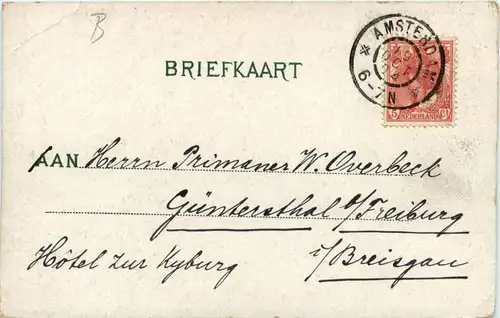 B
AMSTERDAM
6-7N
BRIEFKAART
5 NEDERLAND
AAN Herrn Primaner W. Overbeck
Güntersthal b/Freiburg
i/Breisgau
Hôtel zur Kyburg